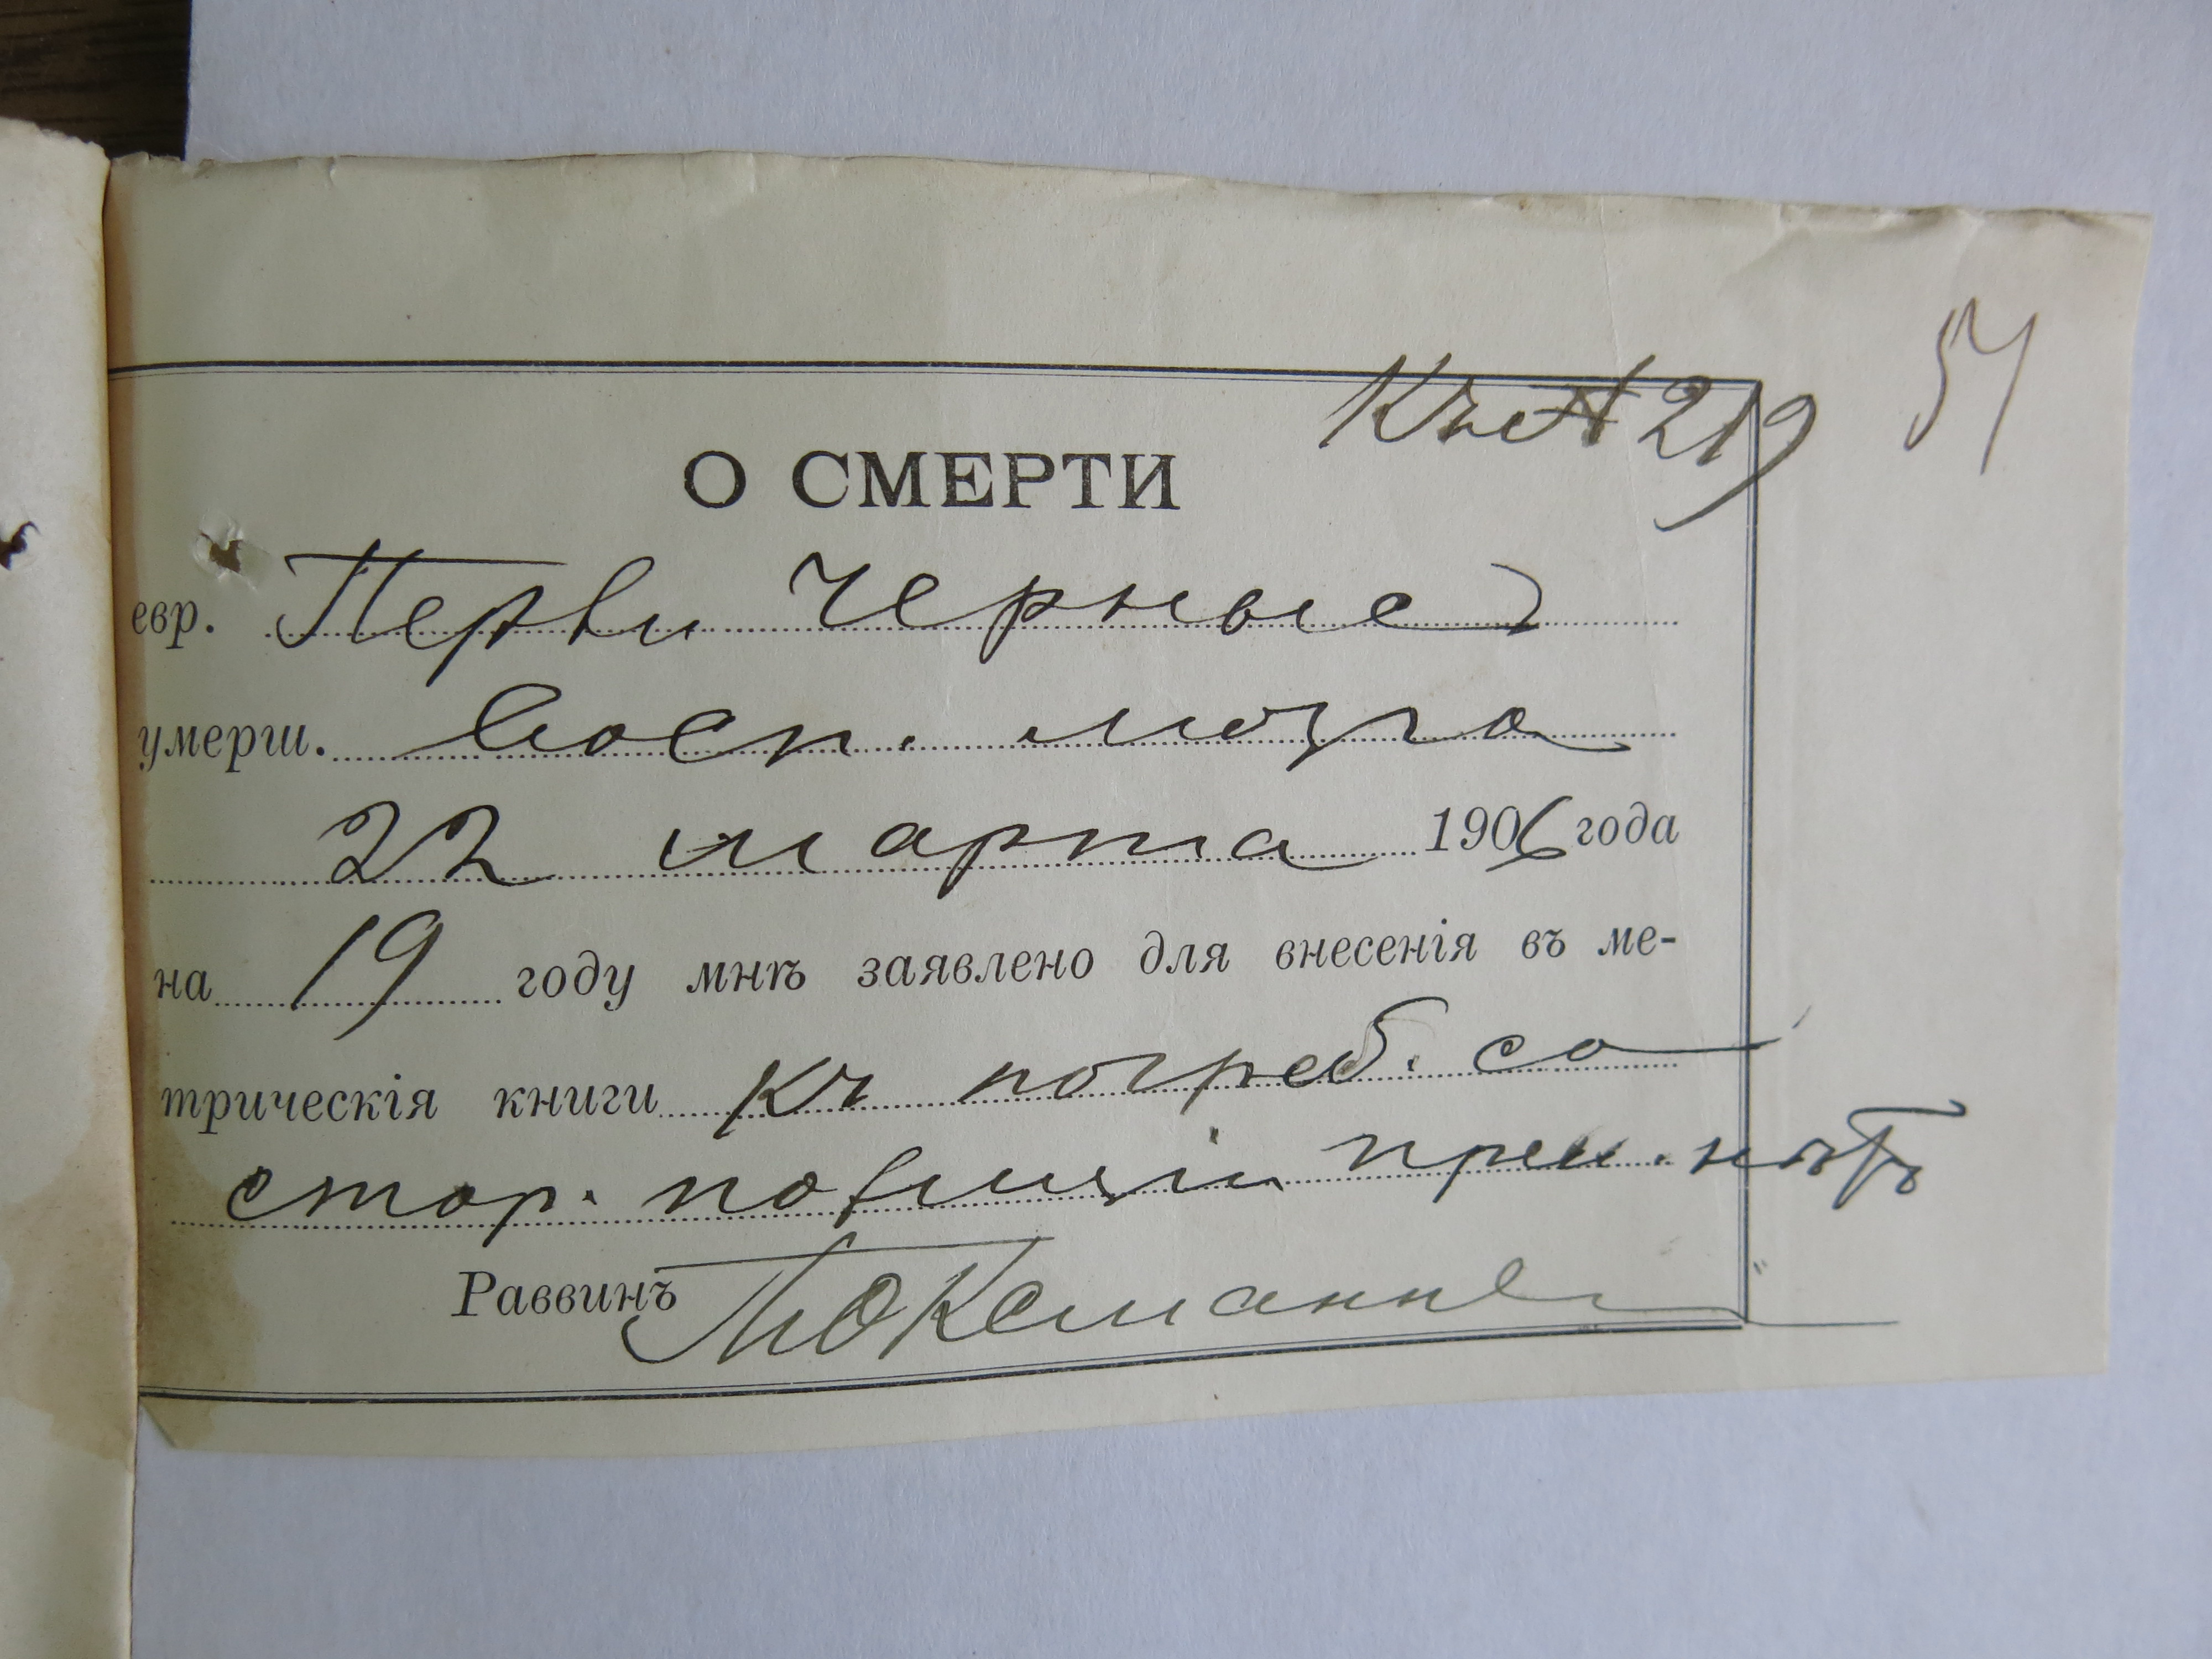 Къ № 219
54
О СМЕРТИ
евр. Перли Черныс
умерш. восп. мозга
22 марта 1906 года
на 19 году мнѣ заявлено для внесенія въ ме-
трическія книги къ погреб. со
стор. полиціи преп. нѣтъ
Раввинъ